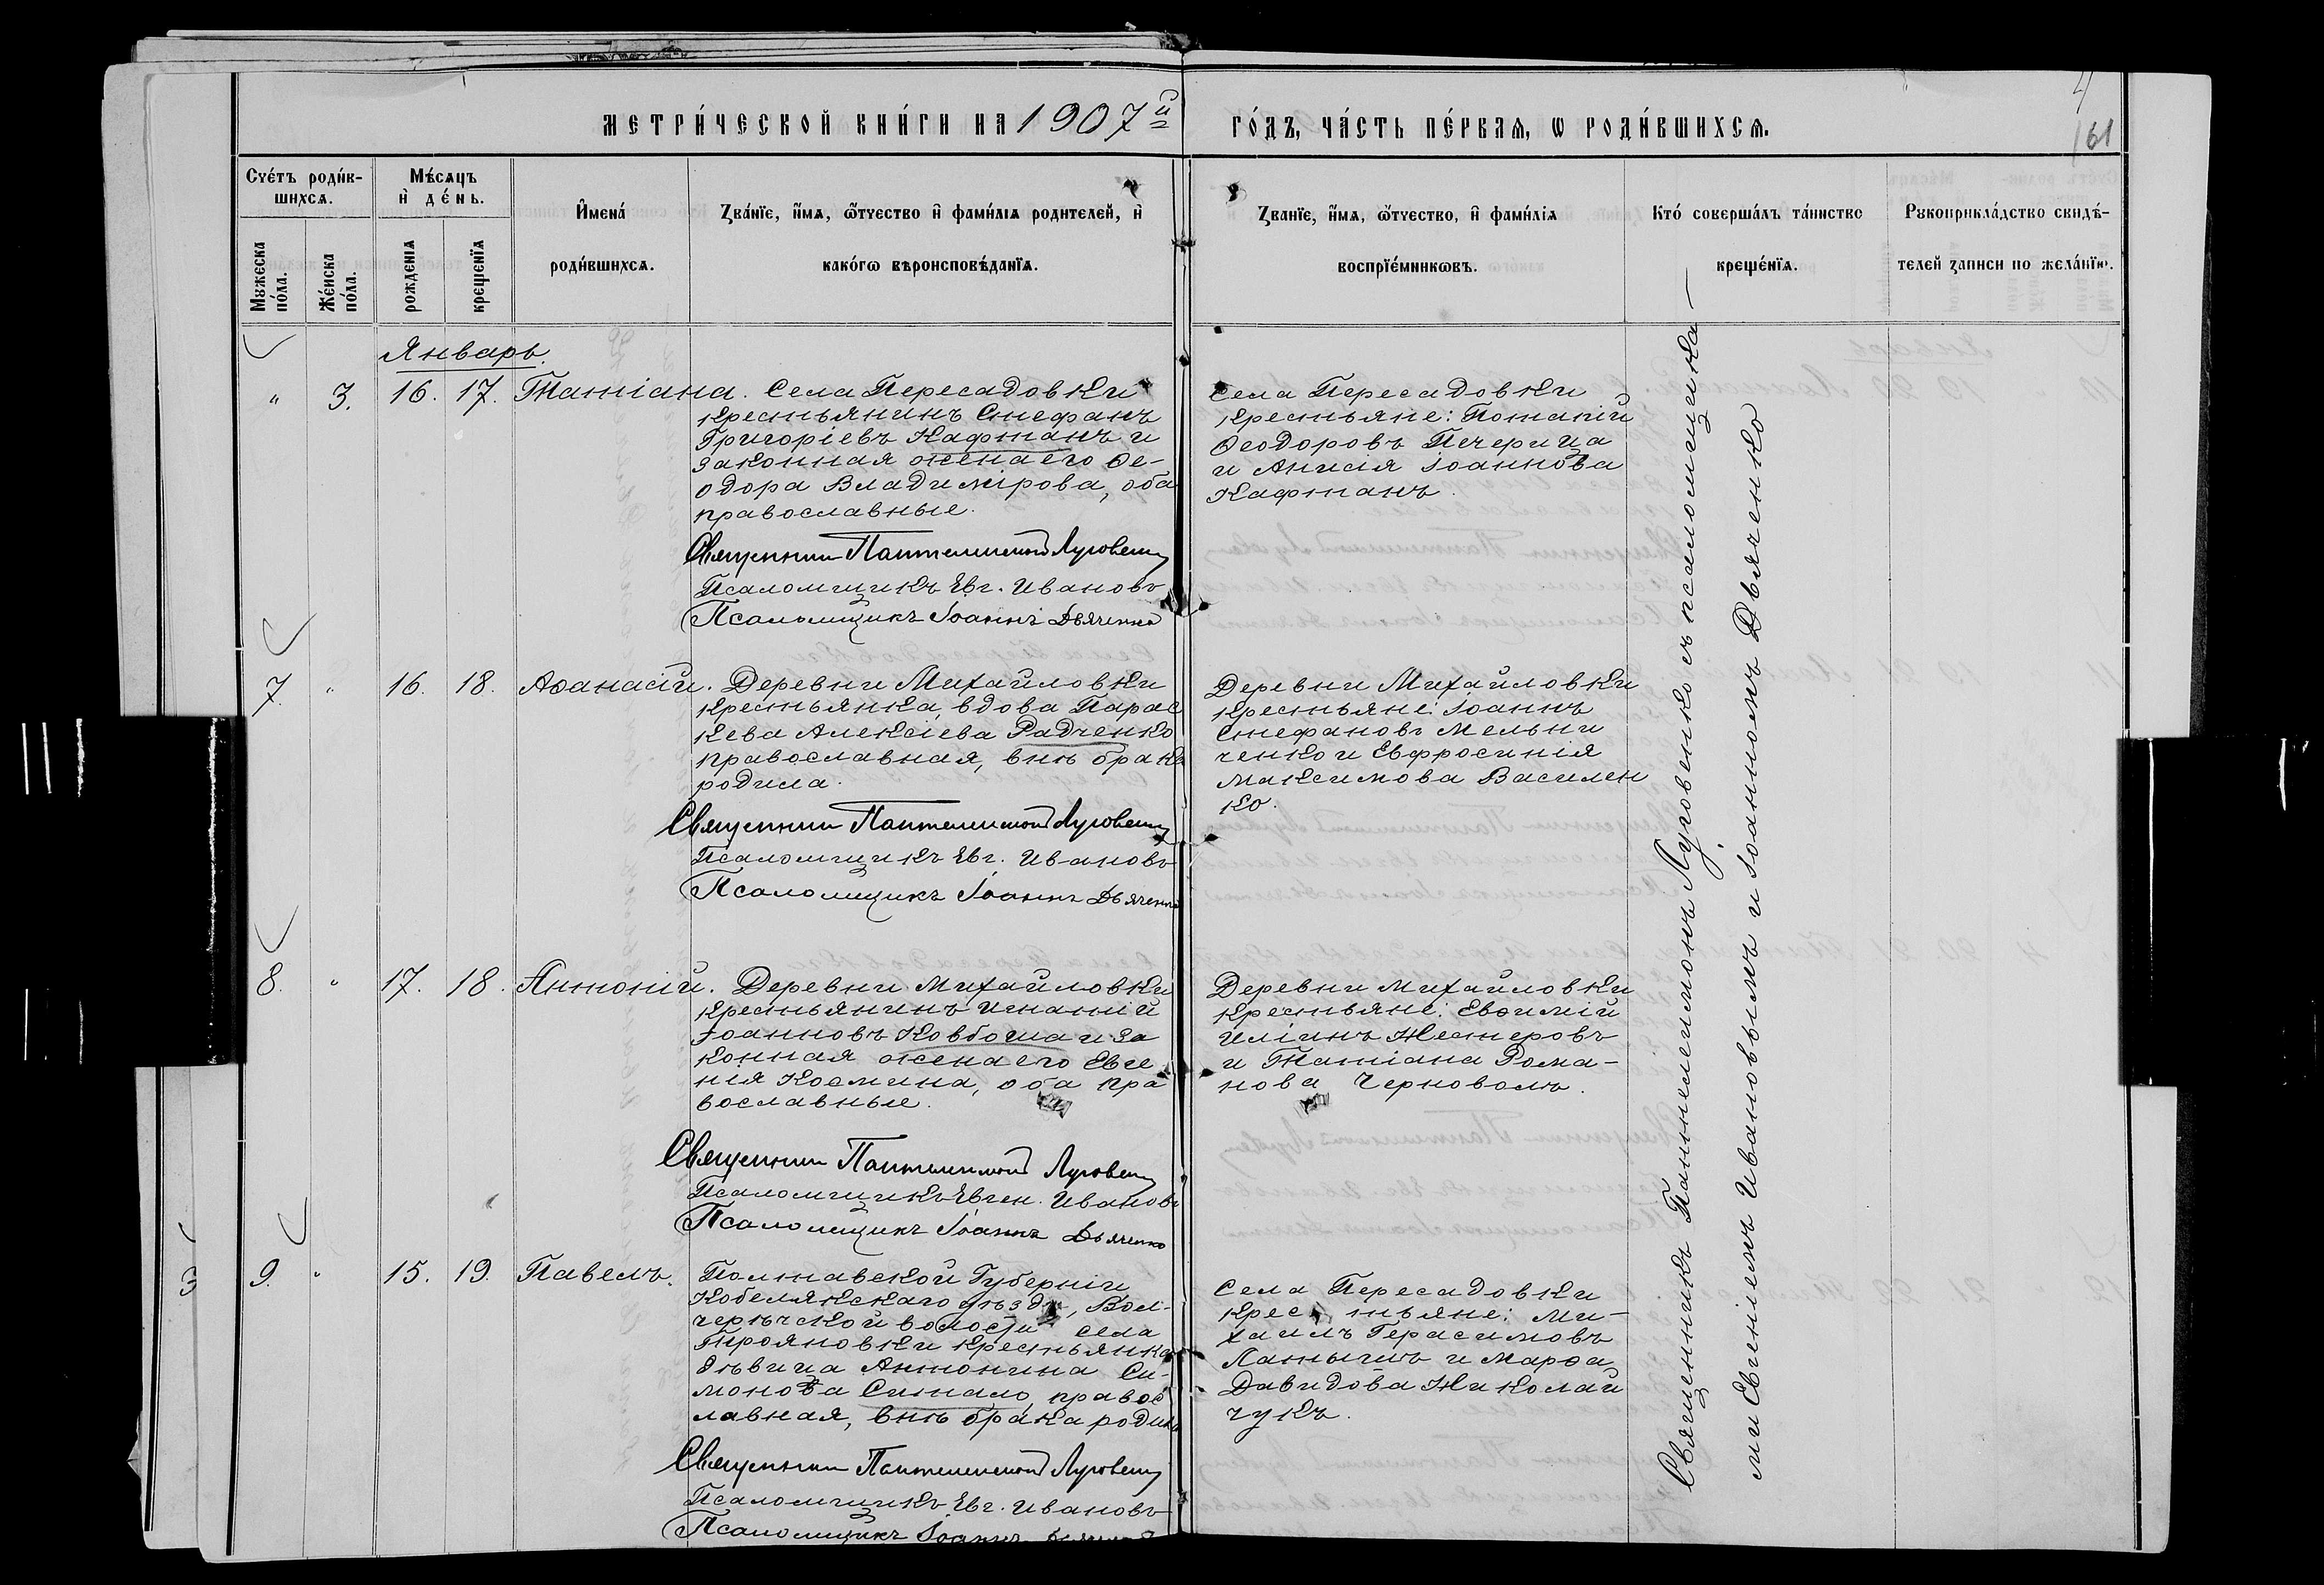 МЕТРИ́ЧЕСКОЙ КНИ́ГИ НА 1907й
ГО́ДЪ, ЧА́СТЬ ПЕ́РВАѦ, Ѡ РОДИ́ВШИХСѦ.
4
161
Сче́тъ роди́в-
шихсѧ.
Мꙋжеска
по́ла.
Же́нска
по́ла.
Мѣ́сѧцъ
и҆ де́нь.
рожденїѧ
крещенїѧ
И҆мена́
роди́вшихсѧ.
Зва́нїе, и҆́мѧ, ѻ҆́тчество и҆ фами́лїѧ родителей, и҆
како́гѡ вѣроисповѣ́данїѧ.
Званїе, и҆́мѧ, ѻ҆́тчество, и҆ фами́лїѧ
воспрїе́мникѡвъ.
Кто́ соверша́лъ та́инство
креще́нїѧ.
Рꙋкоприкла́дство свидѣ́-
телей записи по жела́нїю.
Январь.
" 3. 16. 17. Татіана.
Села Пересадовки
крестьянинъ Стефанъ
Григоріевъ Кафтанъ и
законная жена его Ѳе-
одора Владимірова, оба
православные.
Священник Пантелеимон Луговенко
Псаломщикъ Евг. Ивановъ
Псаломщикъ Іоаннъ Дьяченко
Села Пересадовки
крестьяне: Потапій
Ѳеодоровъ Печерица
и Анисія Іоаннова
Кафтанъ.
7. " 16. 18. Аѳанасій.
Деревни Михайловки
крестьянка, вдова Парас
кева Алексіева Радченко
православная, внѣ брака
родила.
Священник Пантелеимон Луговенко
Псаломщикъ Евг. Ивановъ
Псаломщикъ Іоаннъ Дьяченко
Деревни Михайловки
крестьяне: Іоаннъ
Стефановъ Мельни
ченко и Евфросинія
Максимова Василен
ко.
8. " 17. 18. Антоній.
Деревни Михайловки
крестьянинъ Игнатій
Іоанновъ Ковбоша и за
конная жена его Евге
нія Космина, оба пра
вославные.
Священник Пантелеимон Луговенко
Псаломщикъ Евген. Ивановъ
Псаломщикъ Іоаннъ Дьяченко
Деревни Михайловки
крестьяне: Евѳимій
Иліинъ Нестеровъ
и Татіана Рома-
нова Черноволъ.
9. " 15. 19. Павелъ.
Полтавской Губерніи
Кобелякскаго уѣзда,
волости села
Трояновки крестьянка
дѣвица Антонина Си-
монова Ситало, правос
лавная, внѣ брака родила
Священник Пантелеимон Луговенко
Псаломщикъ Евг. Ивановъ
Псаломщикъ Іоаннъ Дьяченко
Села Пересадовки
крестьяне: Ми-
хаилъ Герасимовъ
Латышъ и Марѳа
Давидова Николай
чукъ.
Священникъ Пантелеимонъ Луговенко съ псаломщика-
ми Евгеніемъ Ивановымъ и Іоанномъ Дьяченко
3